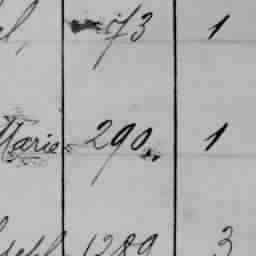 73 1
Marie 290 1
1289 3